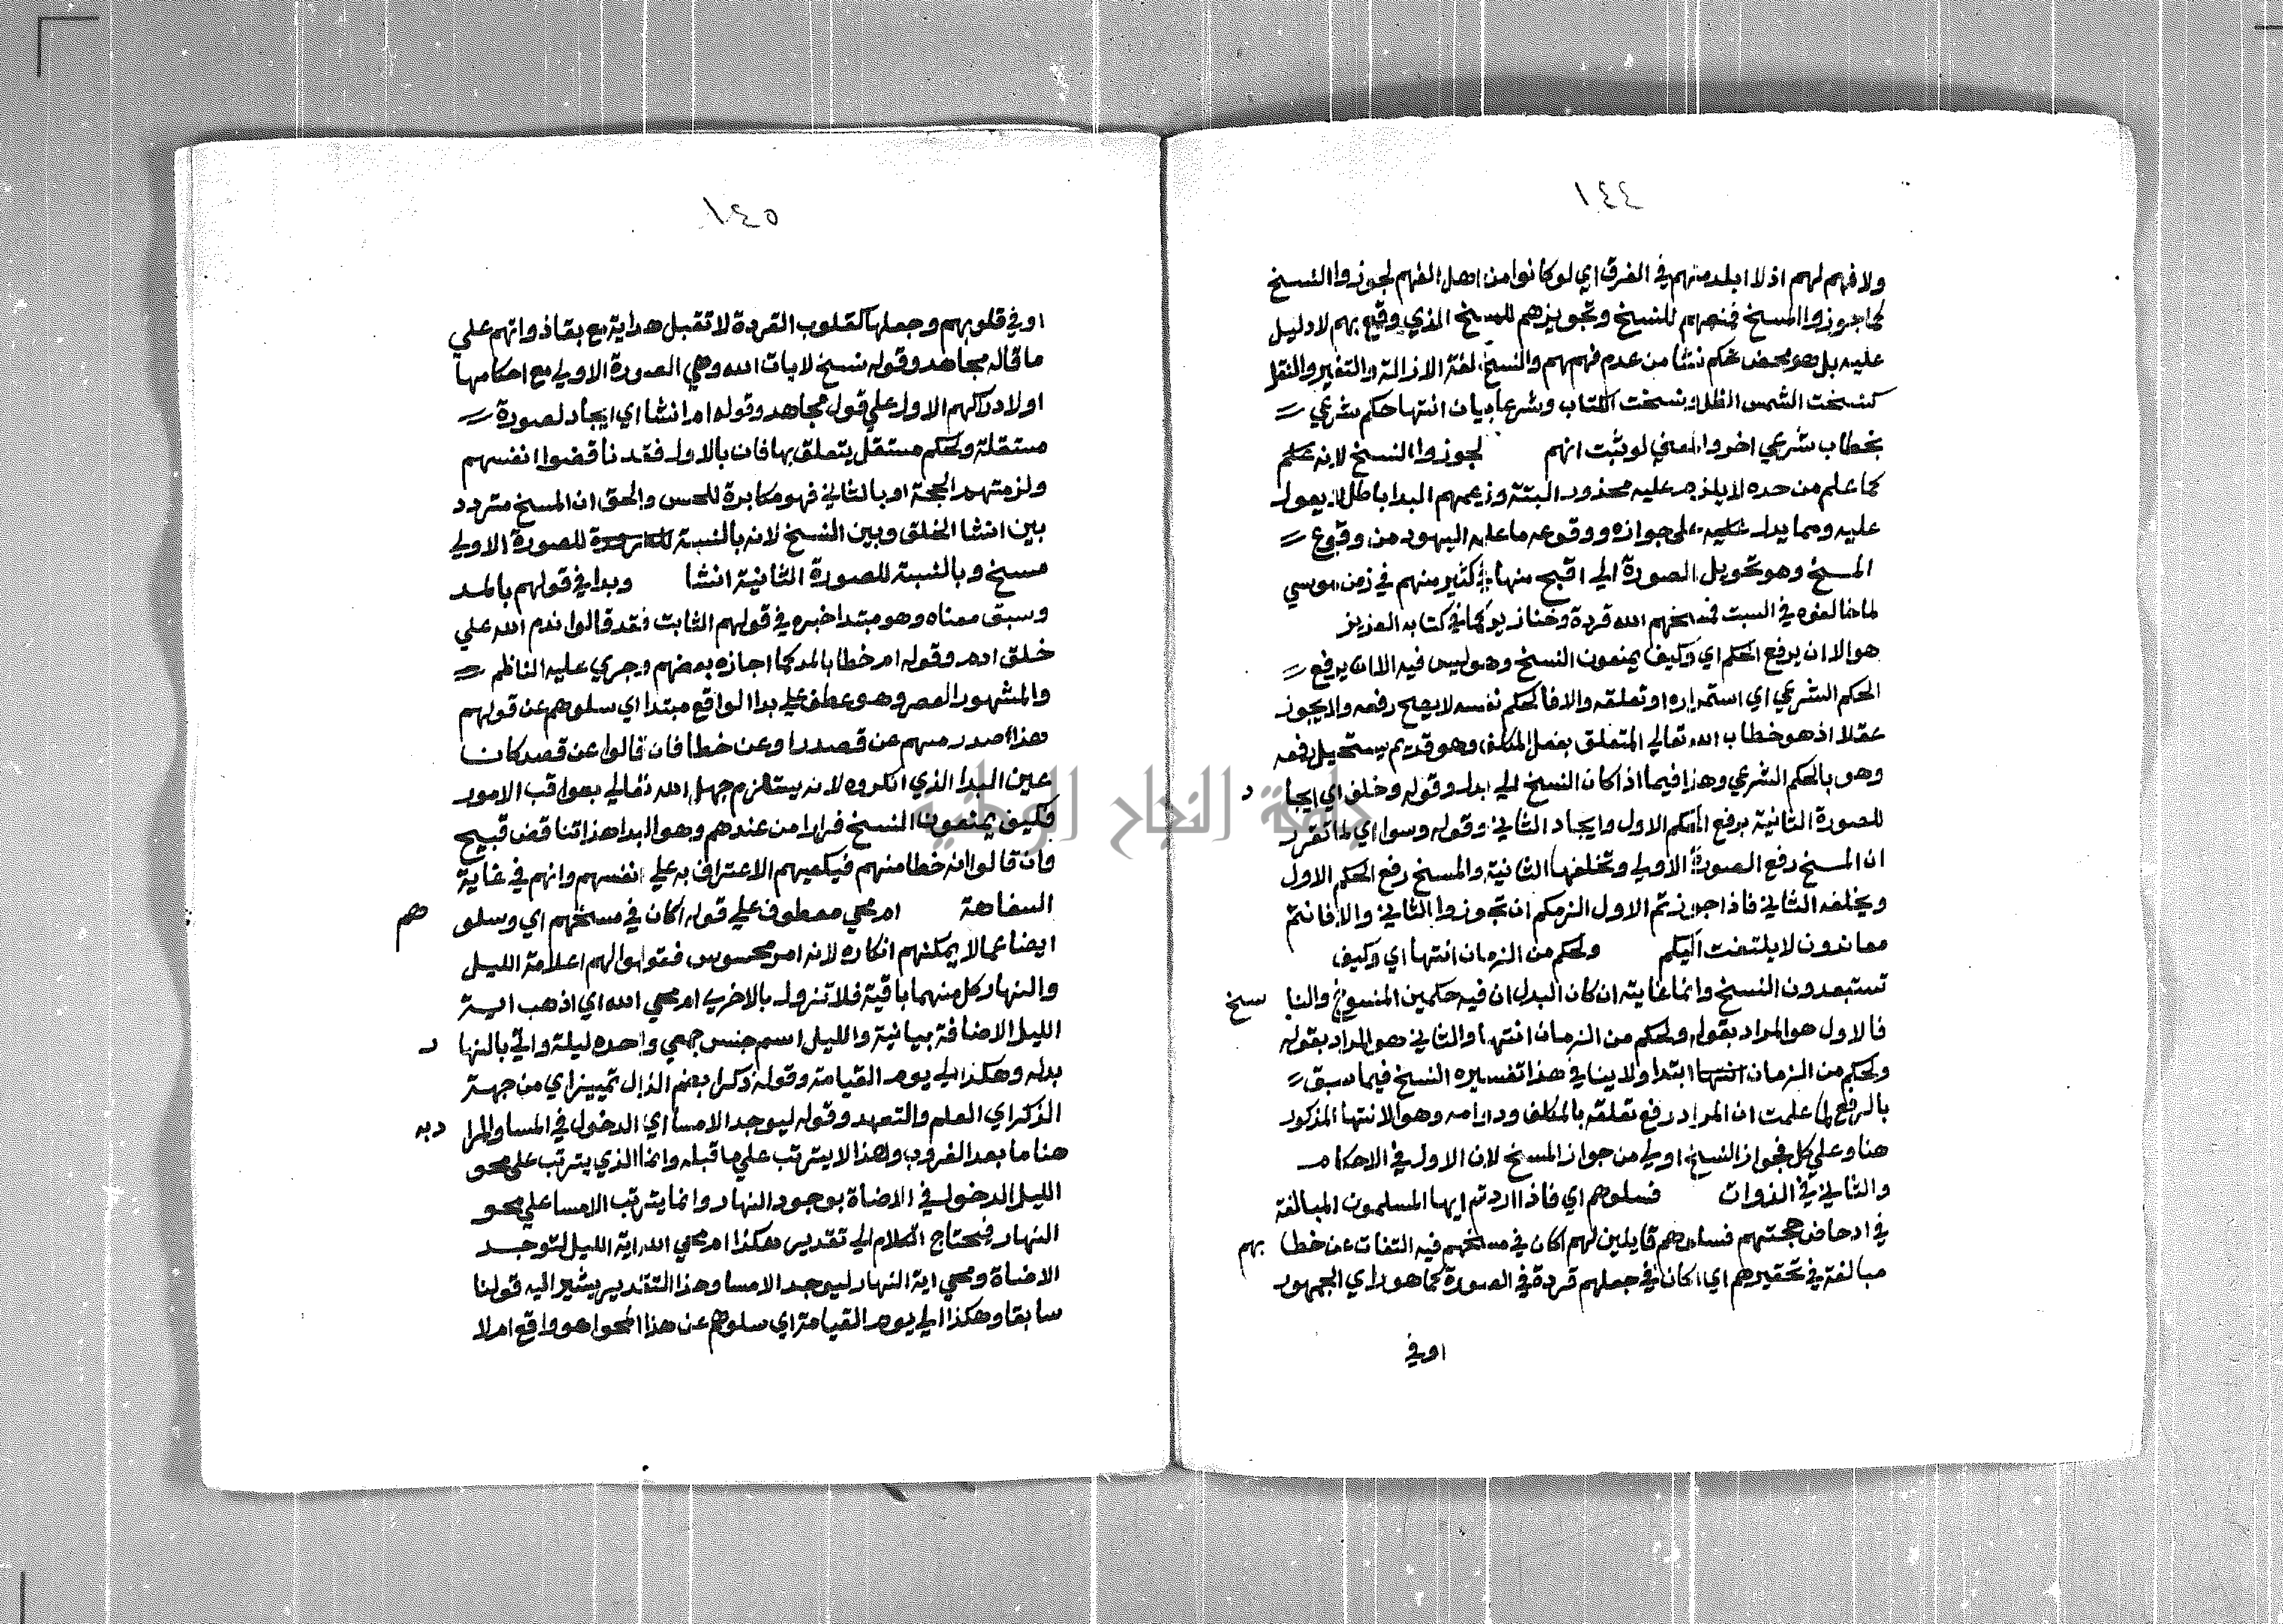 ١٤٤
ولا فهم لهم اذ لا ابلد منهم في الفرق اي لو كانوا من اهل الفهم لجوزوا النسخ
كما جوزوا المسخ فمنعهم للنسخ وتجويزهم للمسخ الذي وقع بهم لا دليل
عليه بل هو محض تحكم نشا من عدم فهمهم والنسخ لغة الازالة والتغيير والنقل
كنسخت الشمس الظل ونسخت الكتاب وشرعا بيان انتها حكم شرعي
بخطاب شرعي اخر والمعني لو ثبت انهم لجوزوا النسخ لانه علم
كما علم من حده لا يلزم عليه محذور البتة وزعمهم البدا باطل لا يعول
عليه ومما يدل عليه على جوازه ووقوعه ما عليه اليهود من وقوع
المسخ وهو تحويل الصورة الي اقبح منها في كثير منهم في زمن موسي
لما خالفوه في السبت فمسخهم الله قردة وخنازير كما في كتابه العزيز
هو الا ان يرفع الحكم اي وكيف يمنعون النسخ وهو ليس فيه الا ان يرفع
الحكم الشرعي اي استمراره او تعلقه والا فالحكم نفسه لا يصح رفعه ولا يجوز
عقلا اذ هو خطاب الله تعالي المتعلق بفعل المكلف وهو قديم يستحيل رفعه
وهو بالحكم الشرعي وهذا فيما اذا كان النسخ الي بدل وقوله وخلق اي ايجا د
للصورة الثانية برفع الحكم الاول وايجاد الثاني وقوله وسوا اي لما تقرر
ان المسخ رفع الصورة الاولي وتخلفها الثانية والمسخ رفع الحكم الاول
ويخلفه الثاني فاذا جوزتم الاول الزمكم ان تجوزوا الثاني والا فانتم
معاندون لا يلتفت اليكم ولحكم من الزمان انتها اي وكيف
تستبعدون النسخ وانما غايته ان كان البدل ان فيه حكمين المنسوخ والنا سخ
فالاول هو المراد بقوله ولحكم من الزمان انتها والثاني هو المراد بقوله
ولحكم من الزمان انتها ابتدا ولا ينافي هذا تفسيره النسخ فيما سبق
بالرفع لما علمت ان المراد رفع تعلقه بالمكلف ودوامه وهو الانتها المذكور
هنا وعلي كل فجواز النسخ اولي من جواز المسخ لان الاول في الاحكام
والثاني في الذوات فسلوهم اي فاذا اردتم ايها المسلمون المبالغة
في ادحاض حجتهم فسلوهم قايلين لهم اكان في مسخهم فيه التفات عن خطا بهم
مبالغة في تحقيرهم اي اكان في جعلهم قردة في الصورة كما هو راي الجمهور
او في
١٤٥
او في قلوبهم وجعلها كقلوب القردة لا تقبل هداية مع بقا ذواتهم علي
ما قاله مجاهد وقوله نسخ لايات الله وهي الصورة الاولي مع احكامها
او لادراكهم الاول علي قول مجاهد وقوله ام انشا اي ايجاد لصورة
مستقلة ولحكم مستقل يتعلق بها فان بالاول فقد ناقضوا انفسهم
ولزمتهم الحجة او بالثاني فهو مكابرة للحس والحق ان المسخ متردد
بين انشا الخلق وبين النسخ لانه بالنسبة للصورة الاولي
مسخ وبالنسبة للصورة الثانية انشا وبدا في قولهم بالمد
وسبق معناه وهو مبتدا خبره في قولهم الثابت فقد قالوا ندم الله علي
خلق ادم وقوله ام خطا بالمد كما اجازه بعضهم وجري عليه الناظم
والمشهور القصر وهو عطف علي بدا الواقع مبتدا اي سلوهم عن قولهم
هذا اصدر منهم عن قصد را وعن خطا فان قالوا عن قصد كان
عين البدا الذي انكروه لانه يستلزم جهل الله تعالي بعواقب الامور
فكيف يمنعون النسخ فرارا من عندهم وهو البدا هذا تناقض قبيح
وان قالوا انه خطا منهم فيكفيهم الاعتراف به علي انفسهم وانهم في غاية
السفاهة ام محي معطوف علي قوله اكان في مسخهم اي وسلو هم
ايضا عما لا يمكنهم انكاره لانه امر محسوس فقولوا لهم اعلامة الليل
والنهار كل منهما باقية فلا تزول بالاخري ام محي الله اي اذهب اية
الليل الاضافة بيانية والليل اسم جنس جمعي واحده ليلة واتي بالنها ر
بدله وهكذا الي يوم القيامة وقوله ذكرا بضم الذال تمييز اي من جهة
الذكر اي العلم والتعهد وقوله ليوجد الامسا اي الدخول في المسا والمرا د به
هنا ما بعد الغروب وهذا لا يترتب علي ما قبله وانما الذي يترتب علي محو
الليل الدخول في الاضاة بوجود النهار وانما يترتب الامسا علي محو
النهار فيحتاج الكلام الي تقدير هكذا ام محي الله اية الليل لتوجد
الاضاة ومحي اية النهار ليوجد الامسا وهذا التقدير يشير اليه قولنا
سابقا وهكذا الي يوم القيامة اي سلوهم عن هذا المحوا هو واقع ام لا
جامعة النجاح الوطنية